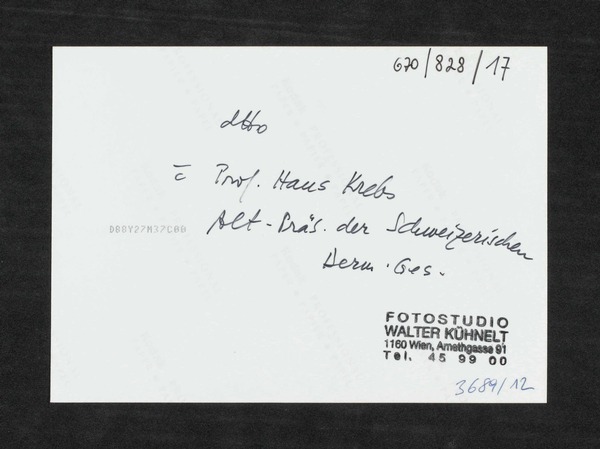 670/828/17
dtto
c̄ Prof. Hans Krebs
D88Y27M37C00
Alt-Präs. der Schweizerischen
Derm. Ges.
FOTOSTUDIO
WALTER KÜHNELT
1160 Wien, Arnethgasse 91
Tel. 45 99 00
3689/12